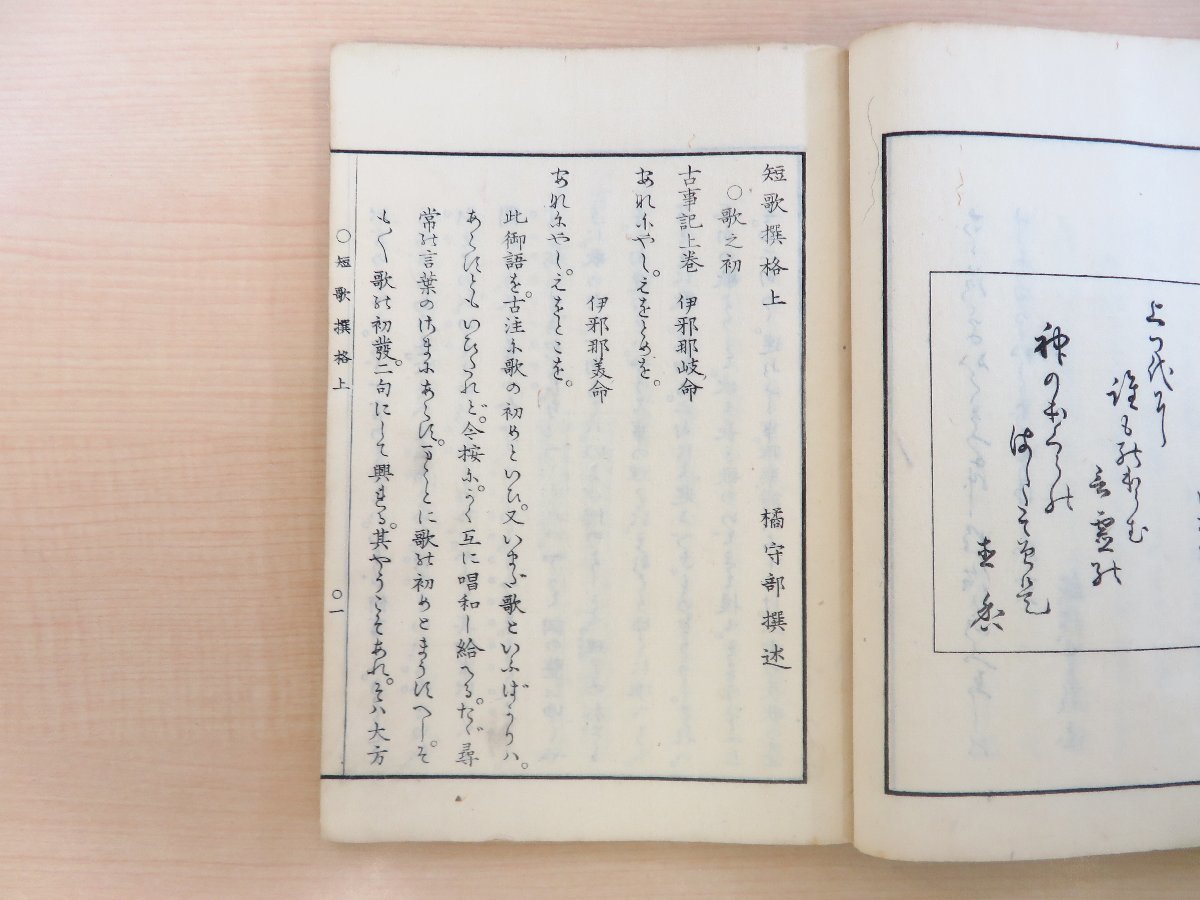 上つ代に
誰も
言霊の
神の
短歌撰格上　橘守部撰述
○歌之初
古事記上巻　伊邪那岐命
あなにやし。えをとめを。
伊邪那美命
あなにやし。えをとこを。
此御語を。古注に歌の初めといひ。又いまだ歌といふばかりハ。
あらずともいひたれど。今按に。かく互に唱和し給へる。たゞ尋
常の言葉のさまにあらず。まことに歌の初めとまうすべし。そ
も〳〵歌の初發。二句にして興れる。其やうこそあれ。そハ大方
○短歌撰格上　○一